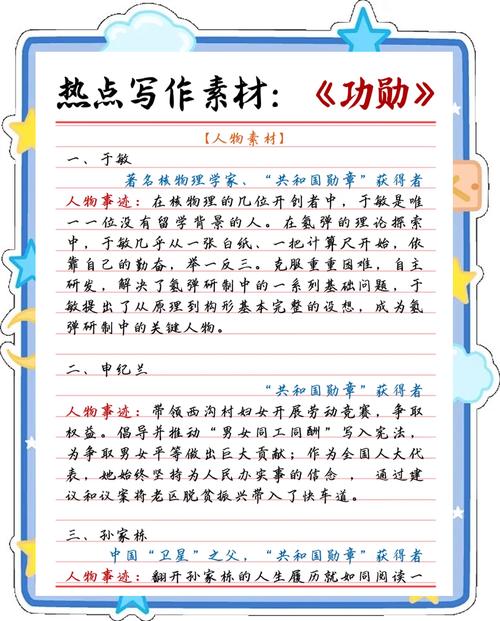 热点写作素材：《功勋》
【人物素材】
一、于敏
著名核物理学家、“共和国勋章”获得者
人物事迹：在核物理的几位开创者中，于敏是唯
一一位没有留学背景的人。在氢弹的理论探索
中，于敏几乎从一张白纸、一把计算尺开始，依
靠自己的勤奋，举一反三。克服重重困难，自主
研发，解决了氢弹研制中的一系列基础问题，于
敏提出了从原理到构形基本完整的设想，成为氢
弹研制中的关键人物。
二、申纪兰
“共和国勋章”获得者
人物事迹：带领西沟村妇女开展劳动竞赛，争取
权益。倡导并推动“男女同工同酬”写入宪法，
为争取男女平等做出巨大贡献；作为全国人大代
表，她始终坚持为人民办实事的信念 ，通过建
议和议案将老区脱贫振兴带入了快车道。
三、孙家栋
中国“卫星”之父，“共和国勋章”获得者
人物事迹：翻开孙家栋的人生履历就如同阅读一